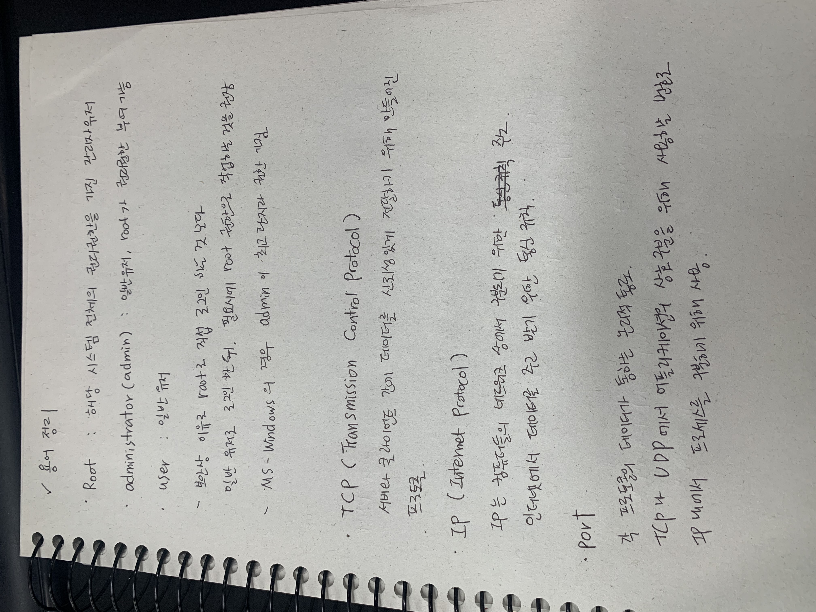 ✓ 용어 정리
· Root : 운영 시스템 전체의 관리권한을 가진 관리자계정
· administrator (admin) : 일반유저, root가 관리권한 부여해준
· user : 일반 유저
- 해킹 이유로 root로 접속
일반 유저로 로그인 가능, 필요시에 root 권한으로 작업해 권한을 사용
- MS-Windows의 경우 admin이 관리자 권한 가짐
· TCP (Transmission Control Protocol)
서버와 클라이언트 간에 데이터를 신뢰성있게 전달하기 위해 만들어진
프로토콜
· IP (Internet Protocol)
IP는 컴퓨터들의 네트워크 상에서 구분하기 위한 주소.
인터넷에서 데이터를 주고 받기 위한 통신 규약.
· Port
각 프로토콜의 데이터가 통하는 논리적 통로.
TCP나 UDP에서 어플리케이션이 상호통신을 위해 사용하는 번호로
IP 내에서 프로세스를 구분하기 위해 사용.